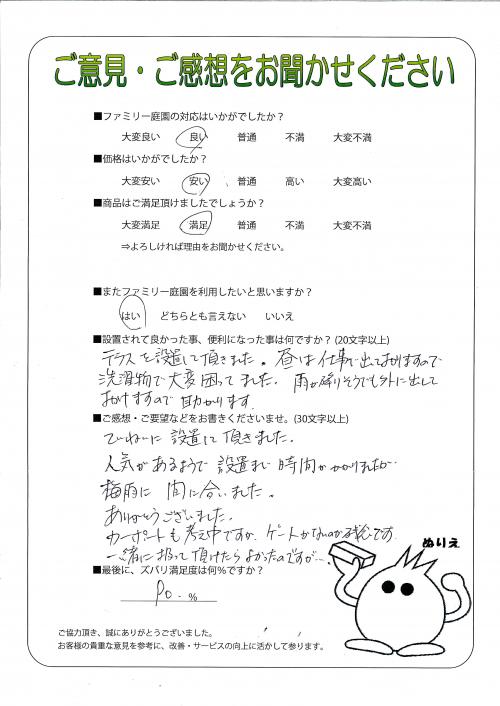 ご意見・ご感想をお聞かせください
■ファミリー庭園の対応はいかがでしたか？
大変良い 良い 普通 不満 大変不満
■価格はいかがでしたか？
大変安い 安い 普通 高い 大変高い
■商品はご満足頂けましたでしょうか？
大変満足 満足 普通 不満 大変不満
⇒よろしければ理由をお聞かせください。
■またファミリー庭園を利用したいと思いますか？
はい どちらとも言えない いいえ
■設置されて良かった事、便利になった事は何ですか？(20文字以上)
テラスを設置して頂きました。昼は仕事で出ておりますので
洗濯物で大変困ってました。雨が降りそうでも外に出して
おけますので助かります
■ご感想・ご要望などをお書きくださいませ。(30文字以上)
ていねいに設置して頂きました。
人気があるようで設置まで時間がかかりましたが…
梅雨に間に合いました。
ありがとうございました。
カーポートも考え中ですが、ゲートがないのが残念です
一緒に扱って頂けたらよかったのですが…。
ぬりえ
■最後に、ズバリ満足度は何％ですか？
90.％
ご協力頂き、誠にありがとうございました。
お客様の貴重な意見を参考に、改善・サービスの向上に活かして参ります。